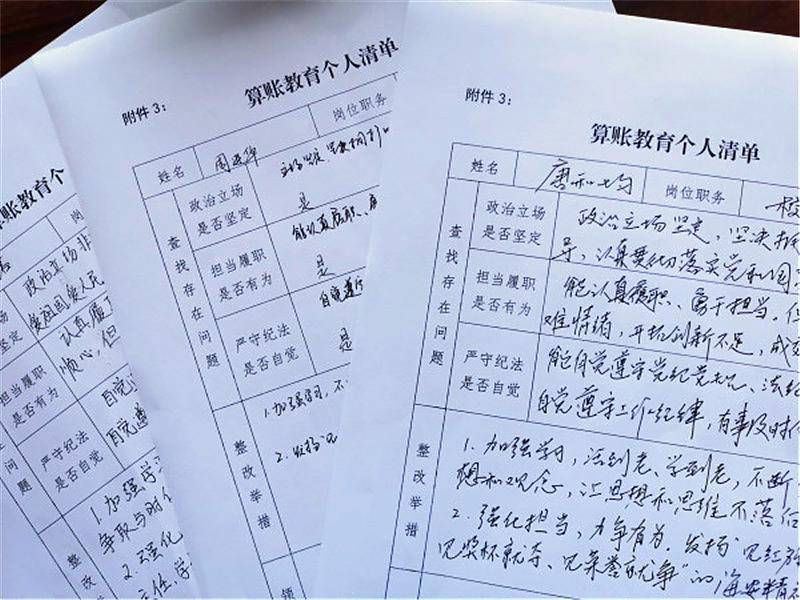 算账教育个人
政治立场非
坚定
爱祖国爱人民
担当履职
是否有为
认真履
顺心，但
严守纪法
是否自觉
自觉
自觉遵
整改
1.加强学
争取与时
2.强化
附件3：
算账教育个人清单
姓名
岗位职务
查找存在问题
政治立场
是否坚定
是
担当履职
是否有为
能认真履职、
是
严守纪法
是否自觉
自觉遵
是
整改举措
1.加强学习，不
2.发扬
领
附件3：
算账教育个人清单
姓名
唐和均
岗位职务
校
查找存在问题
政治立场
是否坚定
政治立场坚定，坚决
导，认真贯彻落实党和国
担当履职
是否有为
能认真履职、勇于担当，但
难情绪，开拓创新不足，成
严守纪法
是否自觉
能自觉遵守党纪党规、法纪
自觉遵守工作纪律，有事及时
整改举措
1.加强学习，活到老、学到老，不断
想和观念，让思想和思维不落
2.强化担当，力争有为，发扬“见红旗
见奖杯就夺、见荣誉就争”的海安精